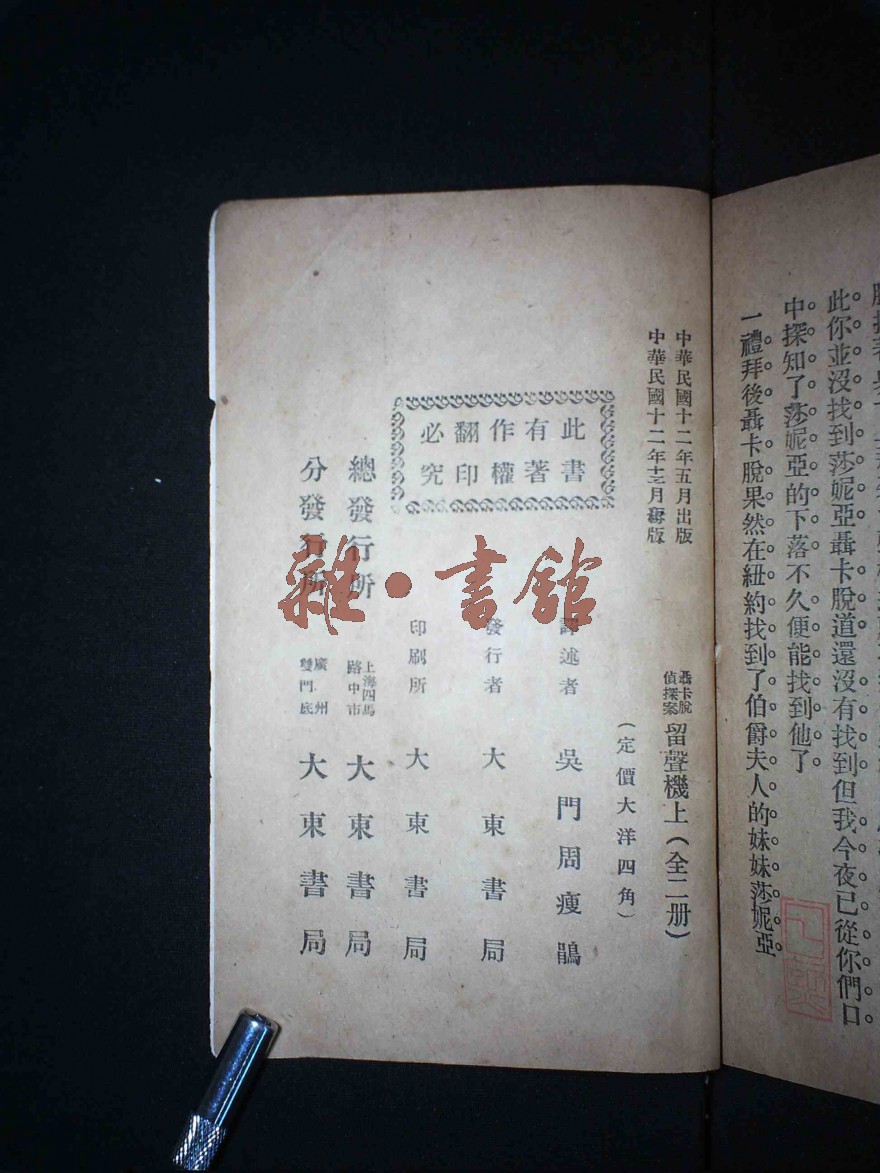 此你並沒找到莎妮亞聶卡脫道還沒有找到但我今夜已從你們口。
中探知了莎妮亞的下落不久便能找到他了。
一禮拜後聶卡脫果然在紐約找到了伯爵夫人的妹妹莎妮亞。
中華民國十二年五月出版
中華民國十二年十二月再版
聶卡脫
偵探案
留聲機上(全二册)
(定價大洋四角)
此書
有著
作權
翻印
必究
譯述者 吳門周瘦鵑
發行者 大東書局
印刷所 大東書局
總發行所 上海四馬路中市 大東書局
分發行所 廣州雙門底 大東書局
雜·書館